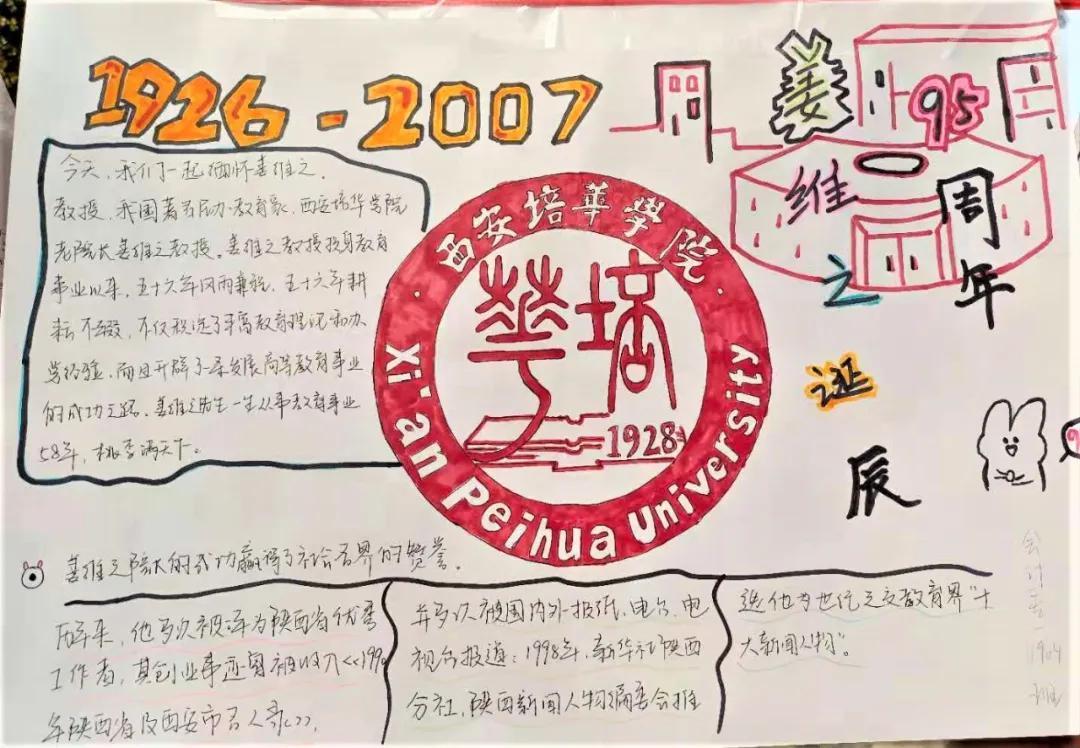 1926-2007
姜维之
95周年
诞辰
今天，我们一起缅怀姜维之
教授，我国著名民办教育家，西安培华学院
老院长姜维之教授。姜维之教授投身教育
事业以来，五十六年风雨兼程，五十六年耕
耘不辍，不仅积淀了丰富教育理论和办
学经验，而且开辟了一条发展高等教育事业
的成功之路。姜维之先生一生从事教育事业
58年，桃李满天下。
西安培華學院
華培
1928
Xi'an Peihua University
姜维之院长的成功赢得了社会各界的赞誉。
历年来，他多次被评为陕西省优秀
工作者，其创业事迹曾被收入<<1990
年陕西省及西安市名人录>>，
并多次被国内外报纸、电台、电
视台报道；1998年，新华社陕西
分社，陕西新闻人物编委会推
选他为世纪之交教育界"十
大新闻人物"。
会计
1904
班